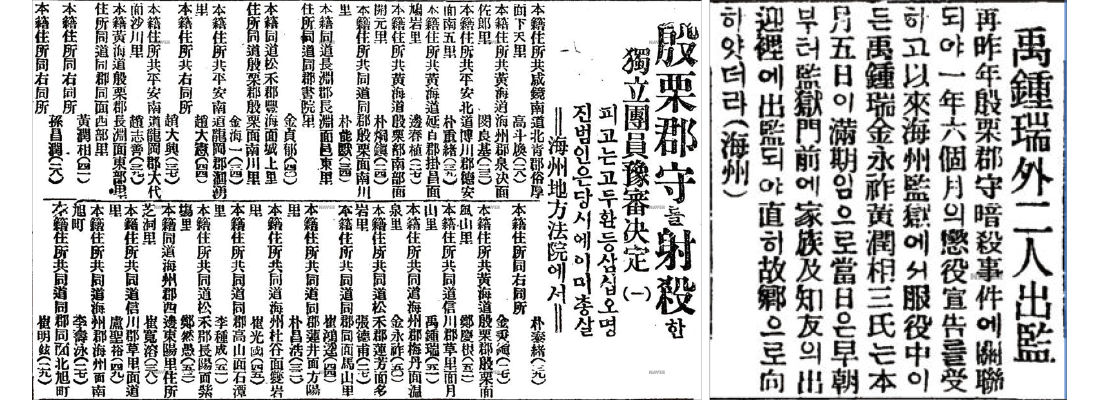 殷栗郡守를射殺한
獨立團員豫審決定(一)
피고는고두환등삼십오명
진범인은당시에이미총살
=海州地方法院에서=
本籍住所共咸鏡南道北青郡俗厚
面下天里 高斗煥
本籍住所共黃海道海州郡泉決面
佐郎里 閔良基(三三)
本籍住所共平安北道博川郡德安
面南五里 朴重緖(三九)
本籍住所共黃海道延白郡掛昌面
鳩岩里 邊春植
本籍住所共黃海道殷栗郡南部面
開元里 朴炳鎭(二四)
本籍住所共同道同郡殷栗面南川
里 朴能獻(二四)
本籍同道長淵郡長淵面邑東里
住所同道同郡書院里 金貞郁(四二)
本籍同道松禾郡豐海面城上里
住所同道殷栗郡殷栗面南川里
金海一(二四)
本籍住所共平安南道龍岡郡
里 趙大憲(四四)
本籍住所共平安南道同右同所
趙大興(三七)
本籍住所共平安南道龍岡郡大代
面沙川里 趙志善
本籍黃海道殷栗郡長淵面東部里
住所同道同郡同面西部里
黃潤相(四二)
本籍住所共同右同所
孫昌潤(二六)
本籍住所共同右同所
朴泰緖(三九)
本籍住所共黃海道殷栗郡殷栗面
風山里 鄭慶根(五二)
本籍住所共同道信川郡草里面月
山里 禹鍾瑞(五二)
本籍住所共同道海州郡梅丹面温
泉里 金永祚(五〇)
本籍住所共同道松禾郡蓮芳面多
岩里 張德甫(二七)
本籍住所共同道同郡同面馬山里
崔鴻逵(二四)
本籍住所共同道同郡蓮井面方陽
里 朴昌浩(三二)
本籍住所共同道海州杜谷面鼈岩
里 崔光國(四五)
本籍住所共同道同郡高山面石潭
里 李種成(五二)
本籍住所共同道松禾郡長陽面紫
陽里 鄭然愚(五三)
本籍同道海州郡西邊東陽里住所
芝河里 崔寬溶(三六)
本籍住所共同道信川郡草里面道
里 盧聖裕(四九)
本籍住所共同道海州郡海州面南
旭町 李壽泳(二七)
本籍住所共同道同郡同面北旭町
崔明鉉(二九)
禹鍾瑞外二人出監
再昨年殷栗郡守暗殺事件에關聯
되야一年六個月의懲役宣告를受
하고以來海州監獄에서服役中이
든禹鍾瑞金永祚黃潤相三氏는本
月五日이滿期임으로當日은早朝
부터監獄門前에家族及知友의出
迎裡에出監되야直히故鄕으로向
하얏더라(海州)